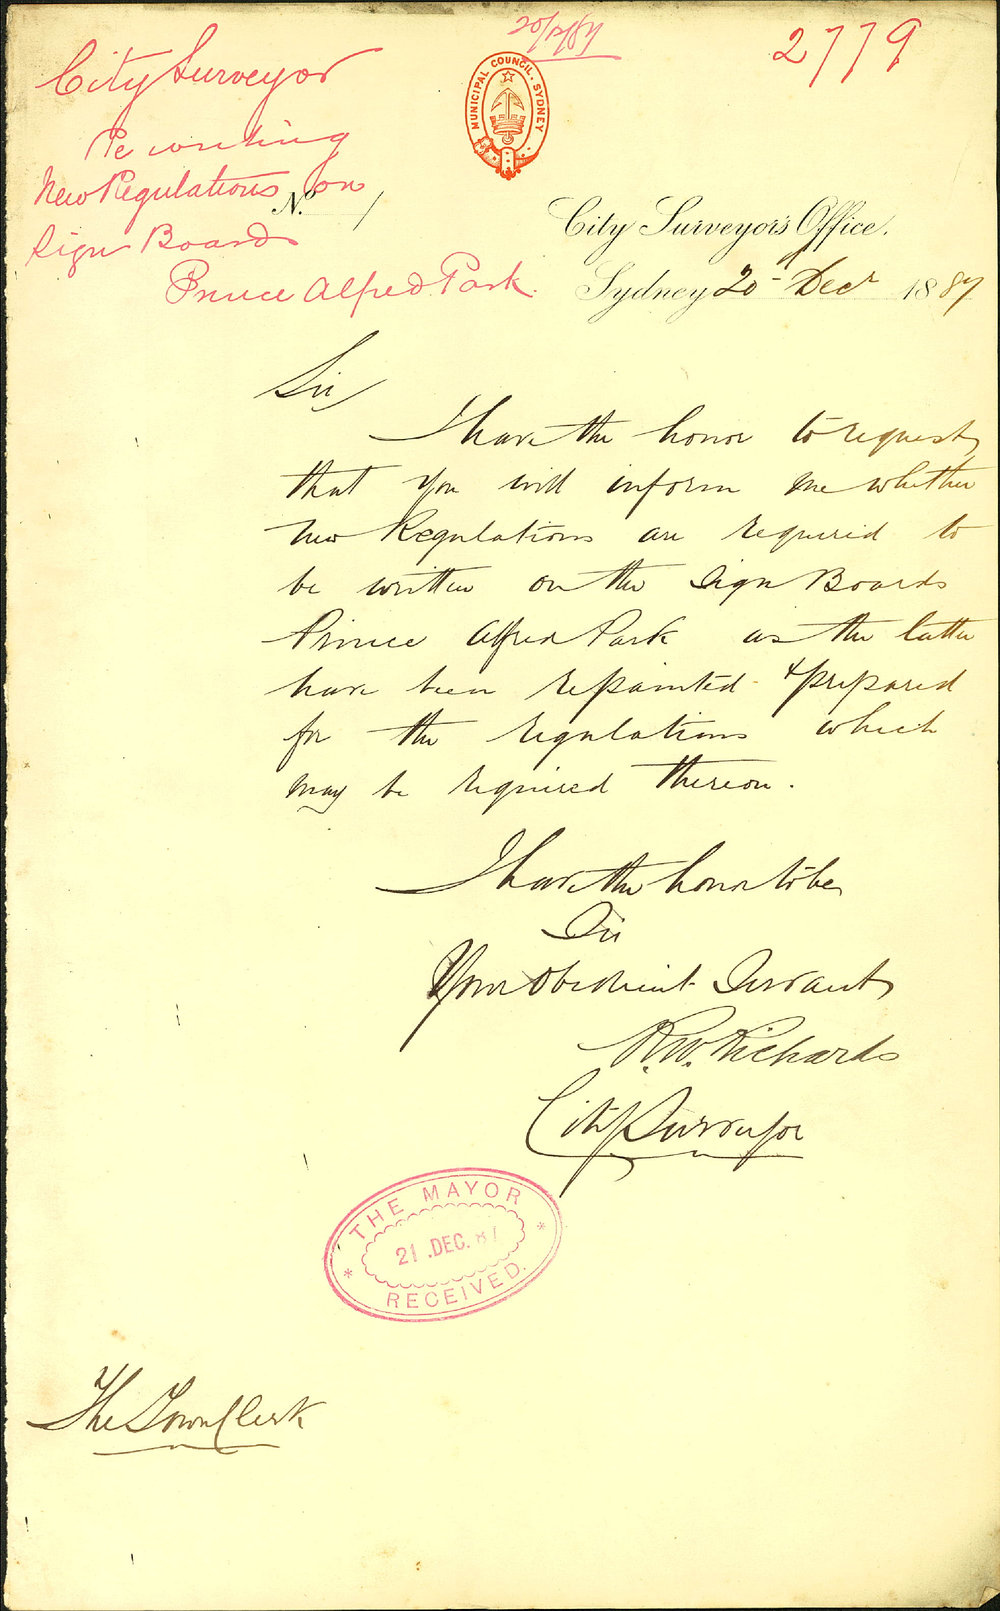 20/12/87
2779
City Surveyor
Re writing
New Regulations on
Sign Boards
Prince Alfred Park.
MUNICIPAL COUNCIL. SYDNEY
No.
City Surveyor's Office.
Sydney 20th Decr 1887
Sir
I have the honor to request
that you will inform me whether
new Regulations are required to
be written on the Sign Boards
Prince Alfred Park as the latter
have been repainted & prepared
for the regulations which
may be required thereon.
I have the honor to be
Sir
Your Obedient Servant
R.W. Richards
City Surveyor
THE MAYOR
21 .DEC. 87
RECEIVED.
The Town Clerk